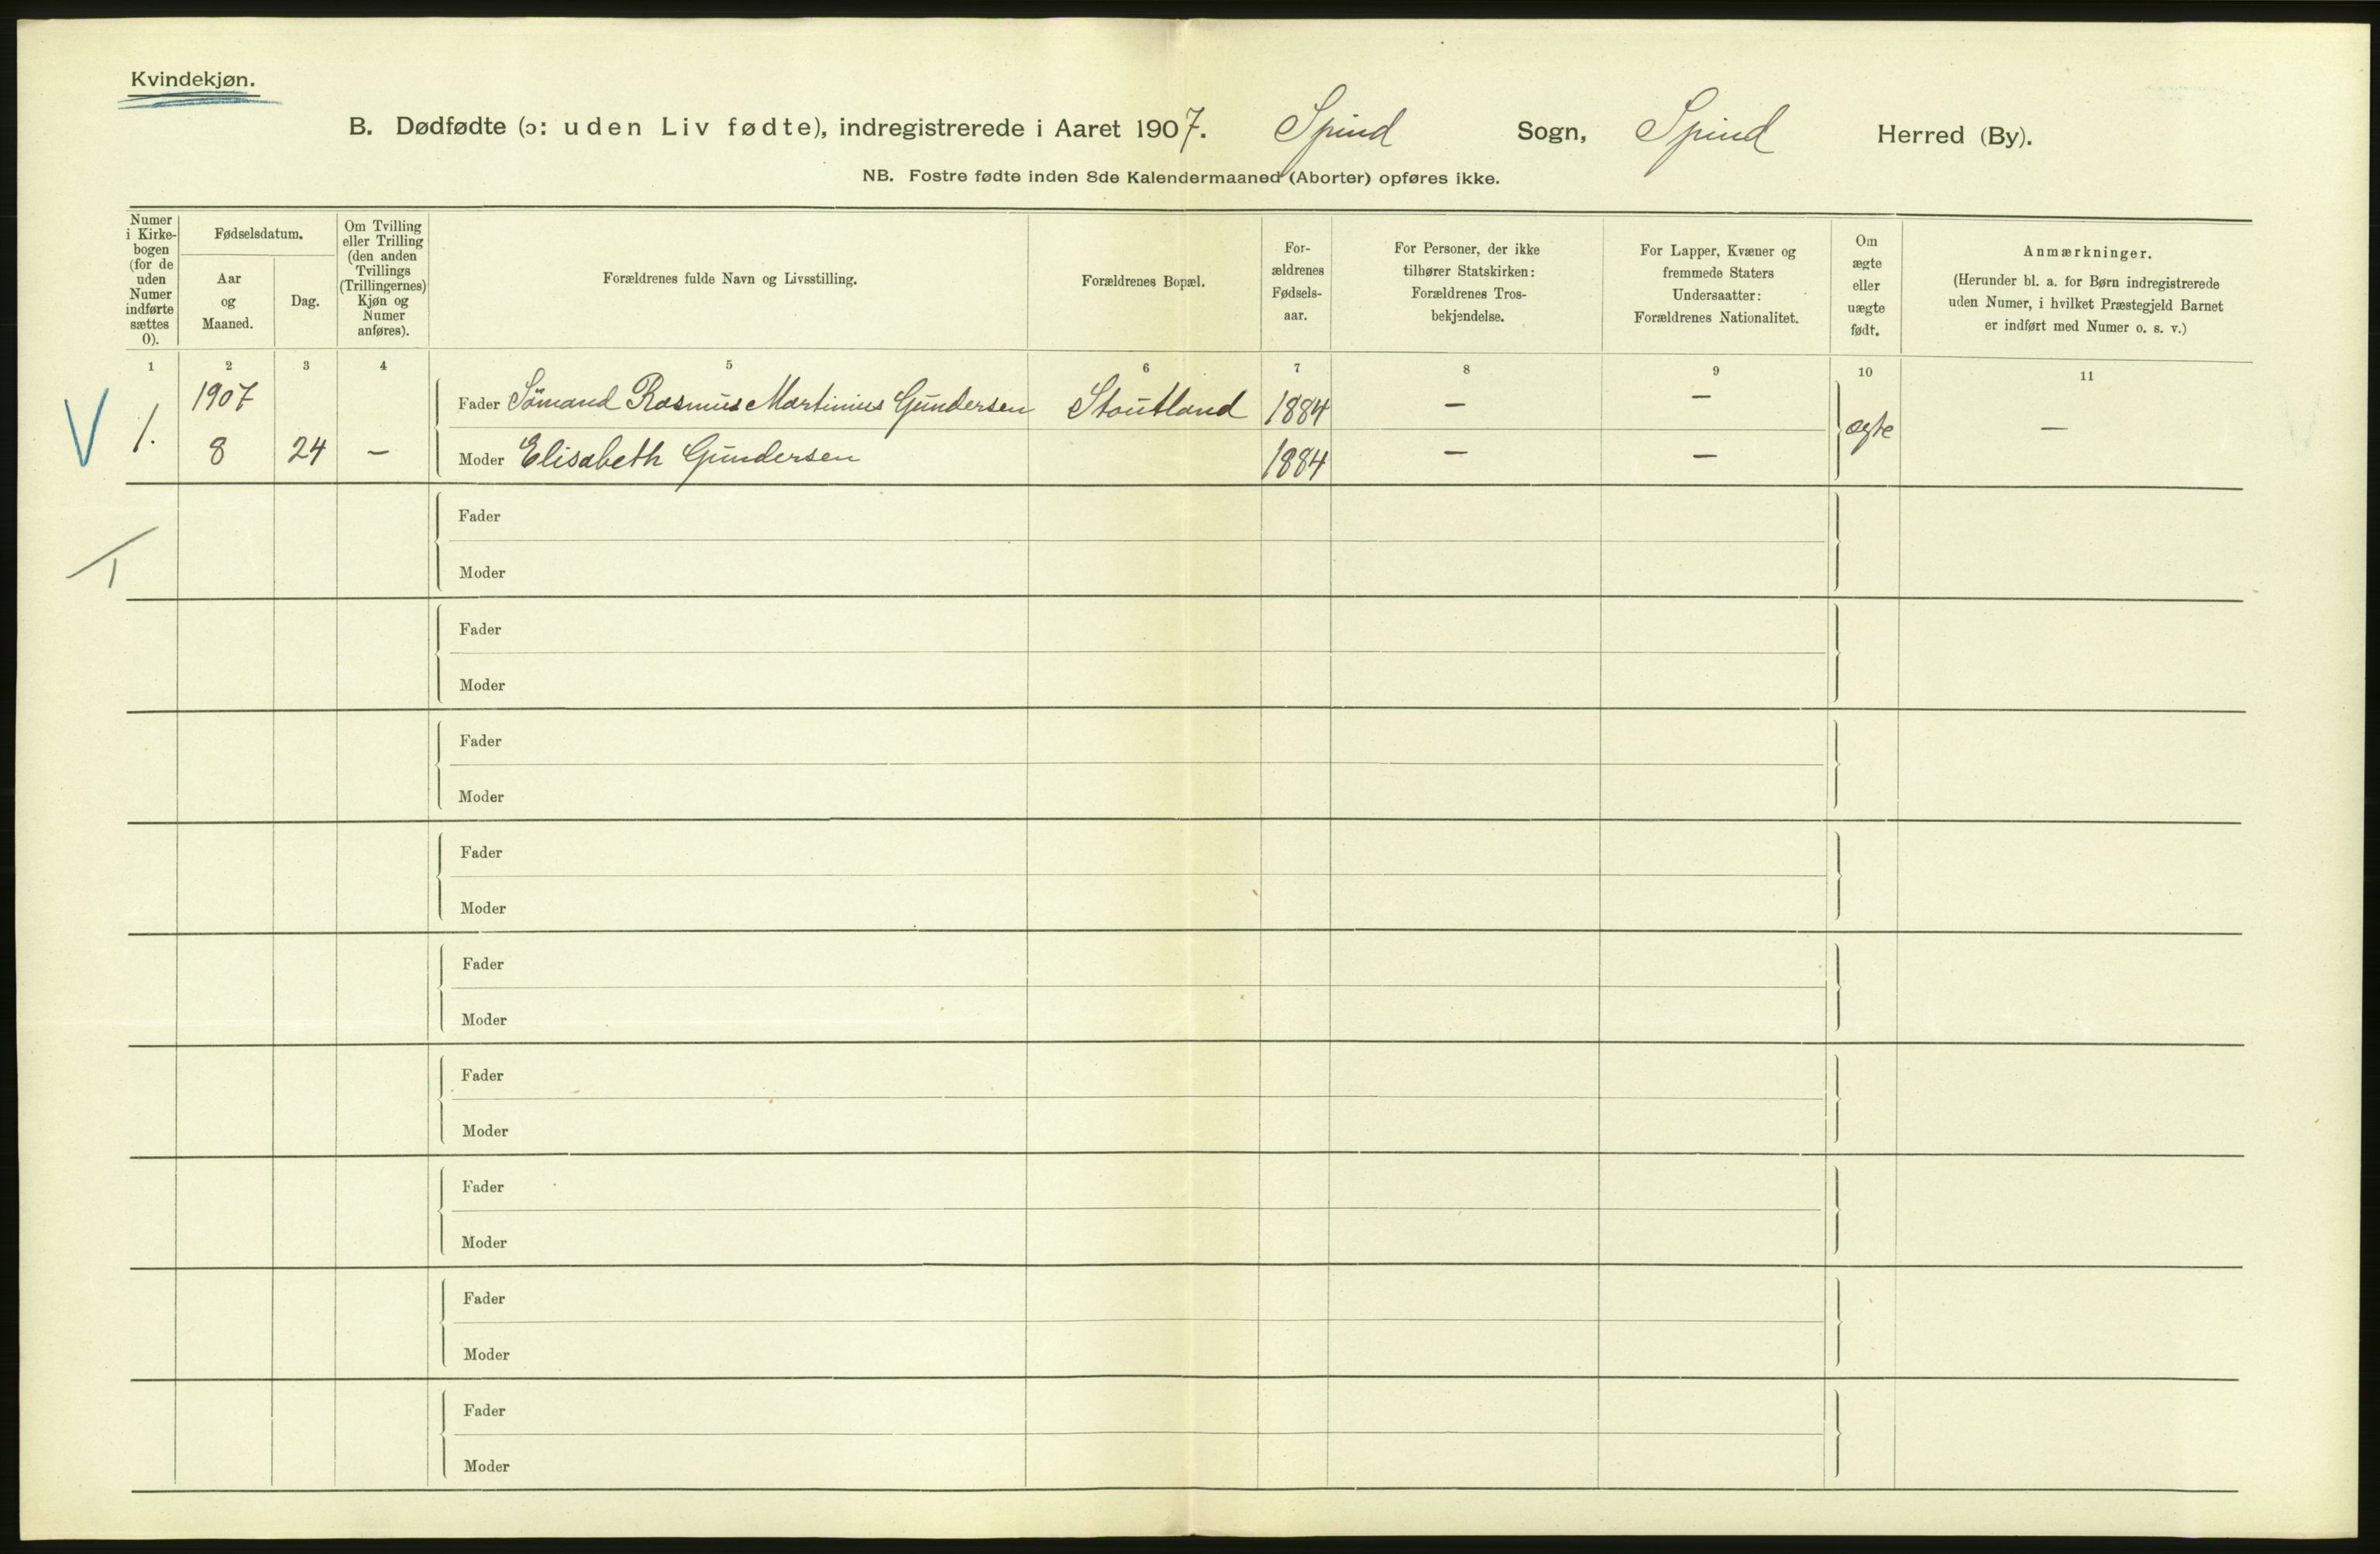 Kvindekjøn.
B. Dødfødte (ɔ: uden Liv fødte), indregistrerede i Aaret 1907. Spind Sogn, Spind Herred (By).
NB. Fostre fødte inden 8de Kalendermaaned (Aborter) opføres ikke.
Numer i Kirke-bogen (for de uden Numer indførte sættes 0).
Fødselsdatum.
Aar og Maaned.
Dag.
Om Tvilling eller Trilling (den anden Tvillings (Trillingernes) Kjøn og Numer anføres).
Forældrenes fulde Navn og Livsstilling.
Forældrenes Bopæl.
For-ældrenes Fødsels-aar.
For Personer, der ikke tilhører Statskirken: Forældrenes Tros-bekjendelse.
For Lapper, Kvæner og fremmede Staters Undersaatter: Forældrenes Nationalitet.
Om ægte eller uægte født.
Anmærkninger.
(Herunder bl. a. for Børn indregistrerede uden Numer, i hvilket Præstegjeld Barnet er indført med Numer o. s. v.)
1 2 3 4 5 6 7 8 9 10 11
V 1. 1907 Fader Sömand Rasmus Martinius Gundersen Stoutland 1884 — — ægte —
8 24 — Moder Elisabeth Gundersen 1884 — —
Fader
Moder
Fader
Moder
Fader
Moder
Fader
Moder
Fader
Moder
Fader
Moder
Fader
Moder
Fader
Moder
Fader
Moder